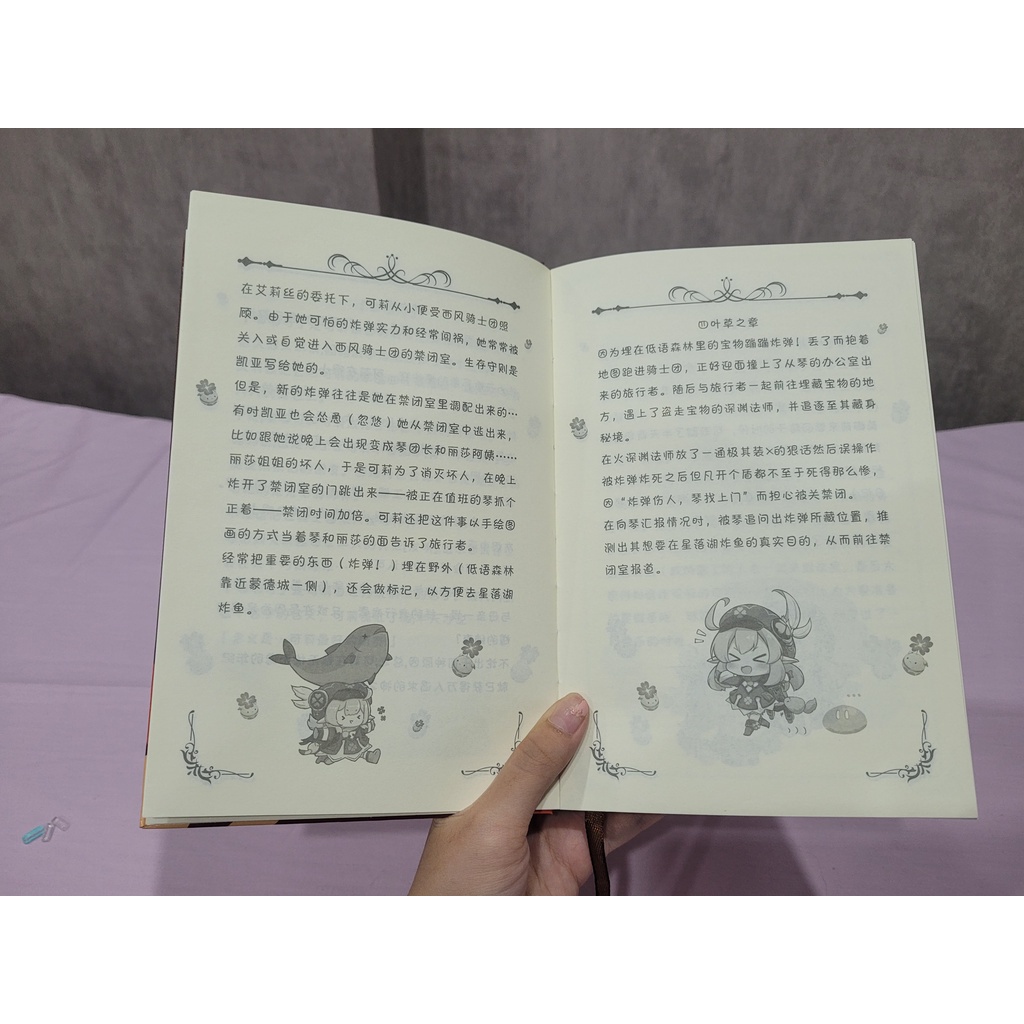 在艾莉丝的委托下，可莉从小便受西风骑士团照
顾。由于她可怕的炸弹实力和经常闯祸，她常常被
关入或自觉进入西风骑士团的禁闭室。生存守则是
凯亚写给她的。
但是，新的炸弹往往是她在禁闭室里调配出来的…
有时凯亚也会怂恿（忽悠）她从禁闭室中逃出来，
比如跟她说晚上会出现变成琴团长和丽莎阿姨……
丽莎姐姐的坏人，于是可莉为了消灭坏人，在晚上
炸开了禁闭室的门跳出来——被正在值班的琴抓个
正着——禁闭时间加倍。可莉还把这件事以手绘图
画的方式当着琴和丽莎的面告诉了旅行者。
经常把重要的东西（炸弹！）埋在野外（低语森林
靠近蒙德城一侧），还会做标记，以方便去星落湖
炸鱼。
四叶草之章
因为埋在低语森林里的宝物蹦蹦炸弹！丢了而抱着
地图跑进骑士团，正好迎面撞上了从琴的办公室出
来的旅行者。随后与旅行者一起前往埋藏宝物的地
方，遇上了盗走宝物的深渊法师，并追逐至其藏身
秘境。
在火深渊法师放了一通极其装×的狠话然后误操作
被炸弹炸死之后但凡开个盾都不至于死得那么惨，
因“炸弹伤人，琴找上门”而担心被关禁闭。
在向琴汇报情况时，被琴追问出炸弹所藏位置，推
测出其想要在星落湖炸鱼的真实目的，从而前往禁
闭室报道。